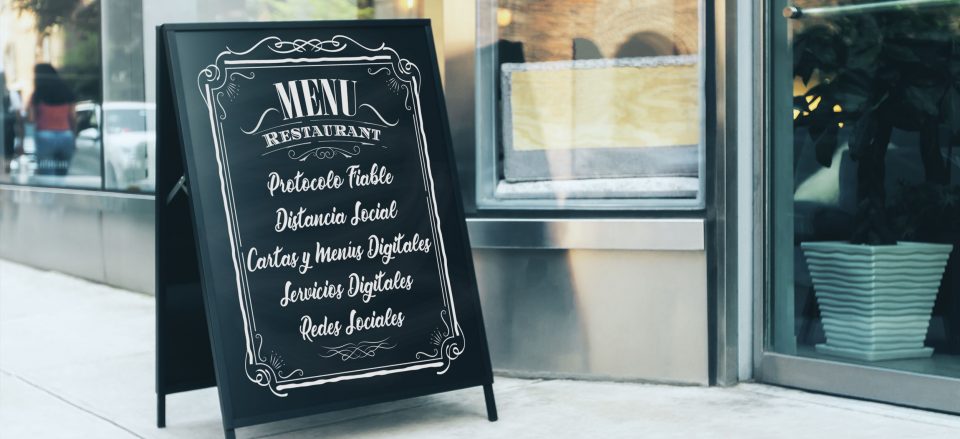 MENU
RESTAURANT
Protocolo Fiable
Distancia Social
Cartas y Menús Digitales
Servicios Digitales
Redes Sociales